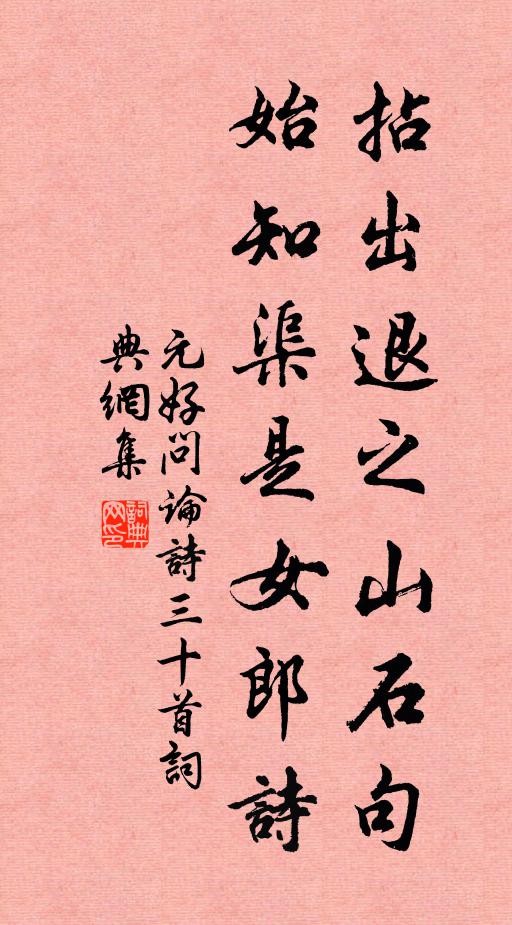 拈出退之山石句
始知渠是女郎詩
元好問論詩三十首詞
典網集
詞典網印